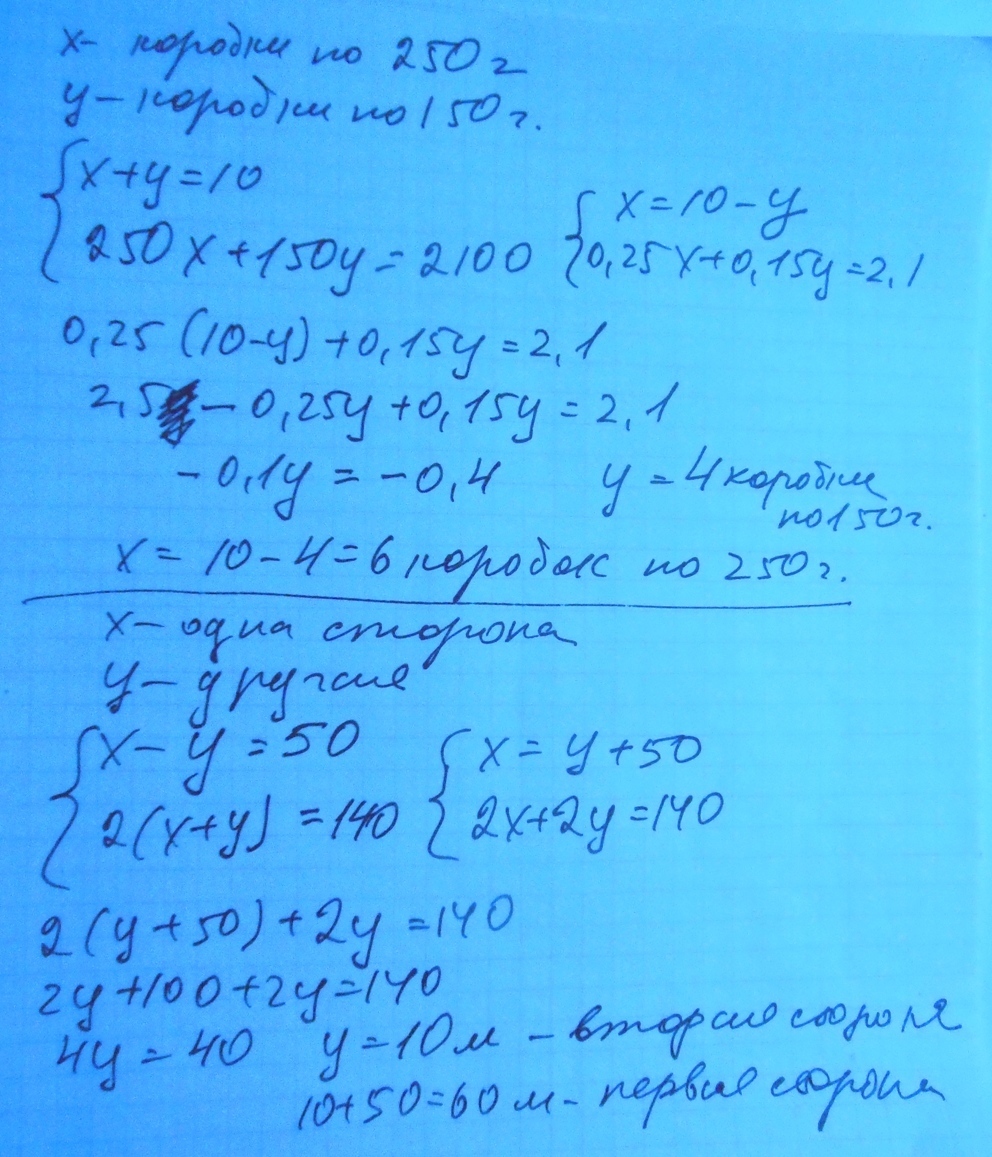 х- коробки по 250 г
у - коробки по 150 г.
{ x+y=10
250x+150y=2100
{ x=10-y
0,25x+0,15y=2,1
0,25 (10-y)+0,15y=2,1
2,5 - 0,25y+0,15y=2,1
-0,1y = -0,4 y = 4 коробки
по 150 г.
x = 10-4=6 коробок по 250 г.
х - одна сторона
у - другая
{ x-y=50
2(x+y)=140
{ x=y+50
2x+2y=140
2(y+50)+2y=140
2y+100+2y=140
4y=40 y=10 м - вторая сторона
10+50=60 м - первая сторона